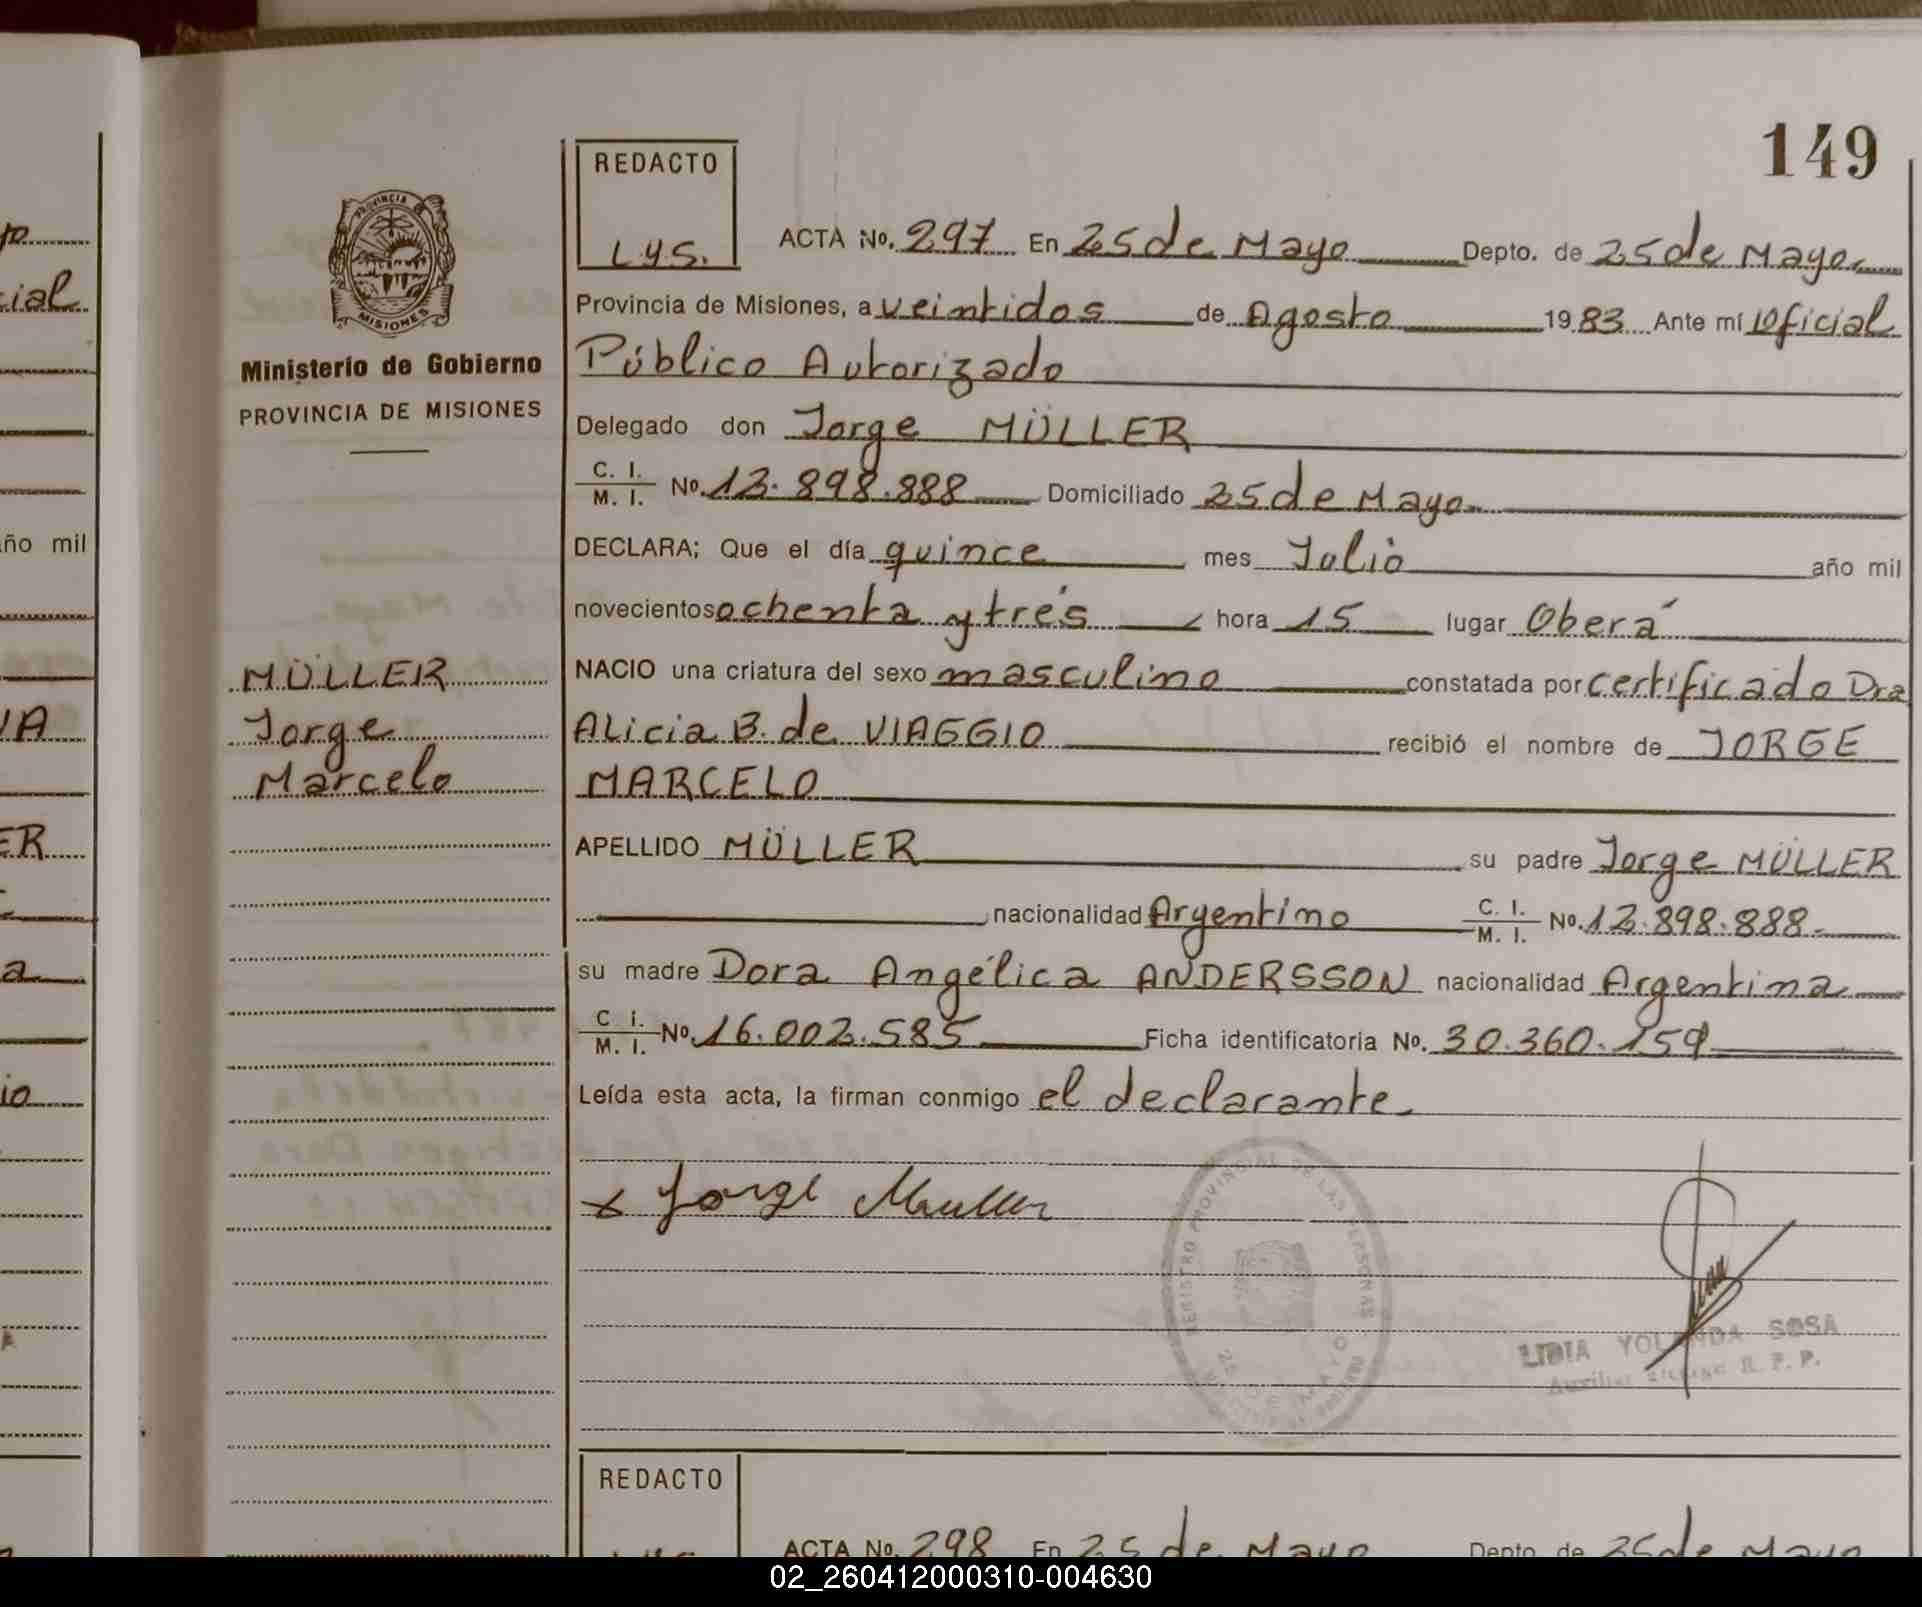 149
REDACTO
L.Y.S.
ACTA No. 297 En 25 de Mayo Depto. de 25 de Mayo
Provincia de Misiones, a veintidos de Agosto 1983 Ante mí Oficial
Público Autorizado
Delegado don Jorge MÜLLER
C. I. / M. I. No. 12.898.888 Domiciliado 25 de Mayo
DECLARA; Que el día quince mes Julio año mil
novecientos ochenta y trés hora 15 lugar Oberá
NACIO una criatura del sexo masculino constatada por certificado Dra
Alicia B. de VIAGGIO recibió el nombre de JORGE
MARCELO
APELLIDO MÜLLER su padre Jorge MÜLLER
nacionalidad Argentino C. I. / M. I. No. 12.898.888
su madre Dora Angélica ANDERSSON nacionalidad Argentina
C. I. / M. I. No. 16.002.585 Ficha identificatoria No. 30.360.159
Leída esta acta, la firman conmigo el declarante
x Jorge Muller
REGISTRO PROVINCIAL DE LAS PERSONAS
25 DE MAYO
LIDIA YOLANDA SOSA
R. P. P.
PROVINCIA
MISIONES
Ministerio de Gobierno
PROVINCIA DE MISIONES
MÜLLER
Jorge
Marcelo
REDACTO
ACTA No. 298 En 25 de Mayo Depto. de 25 de Mayo
cial
año mil
ER
02_260412000310-004630